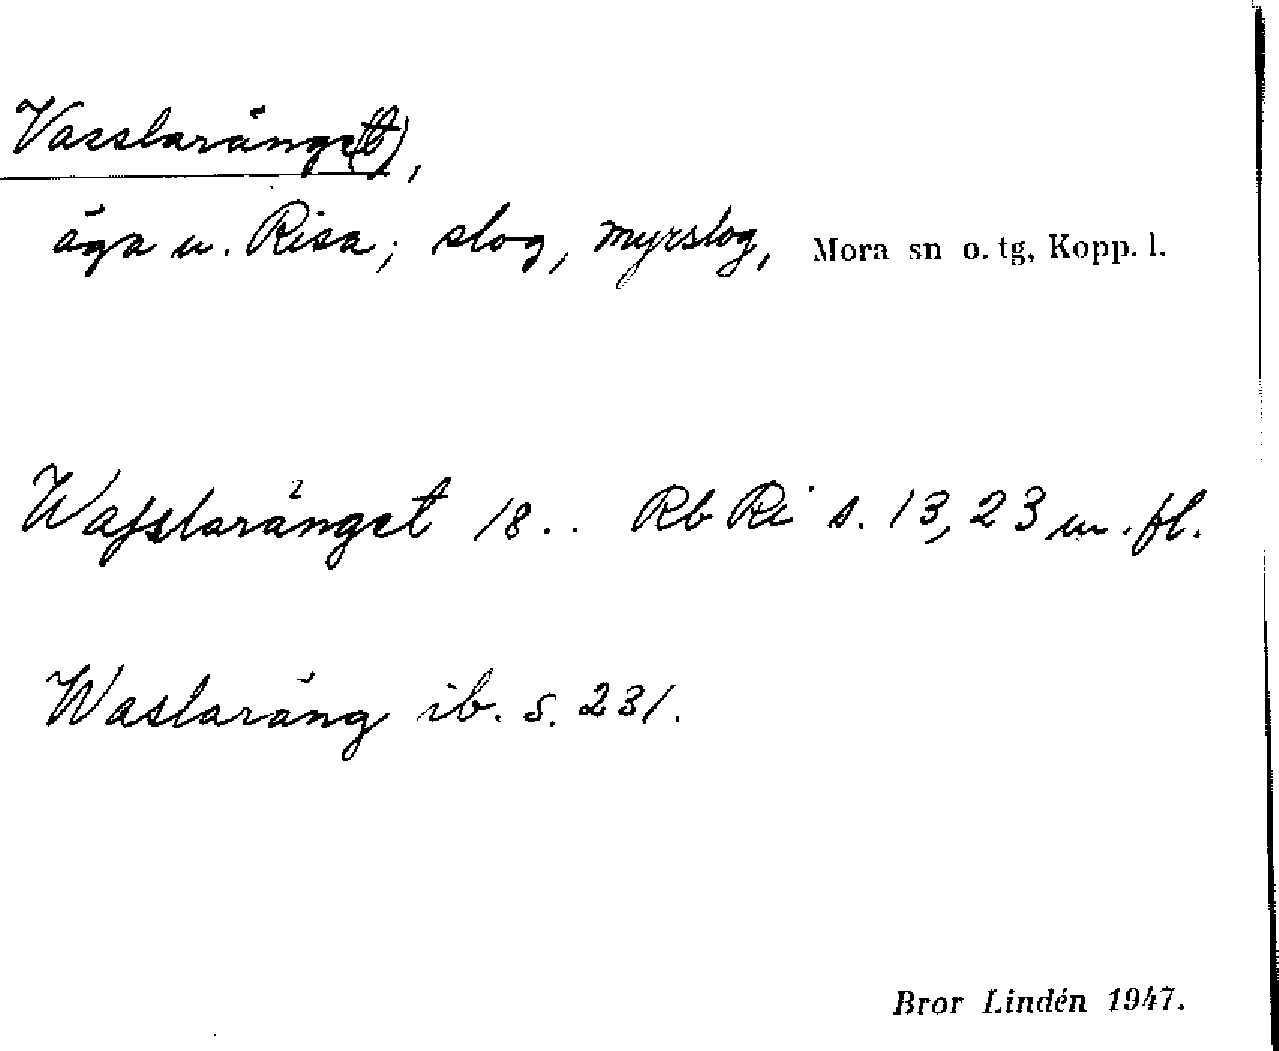 Vasslaräng(et),
äga u. Risa; slog, myrslog, Mora sn o. tg, Kopp. l.
Wafslaränget 18.. Rb Ri s. 13, 23 m. fl.
Waslaräng ib. s. 231.
Bror Lindén 1947.